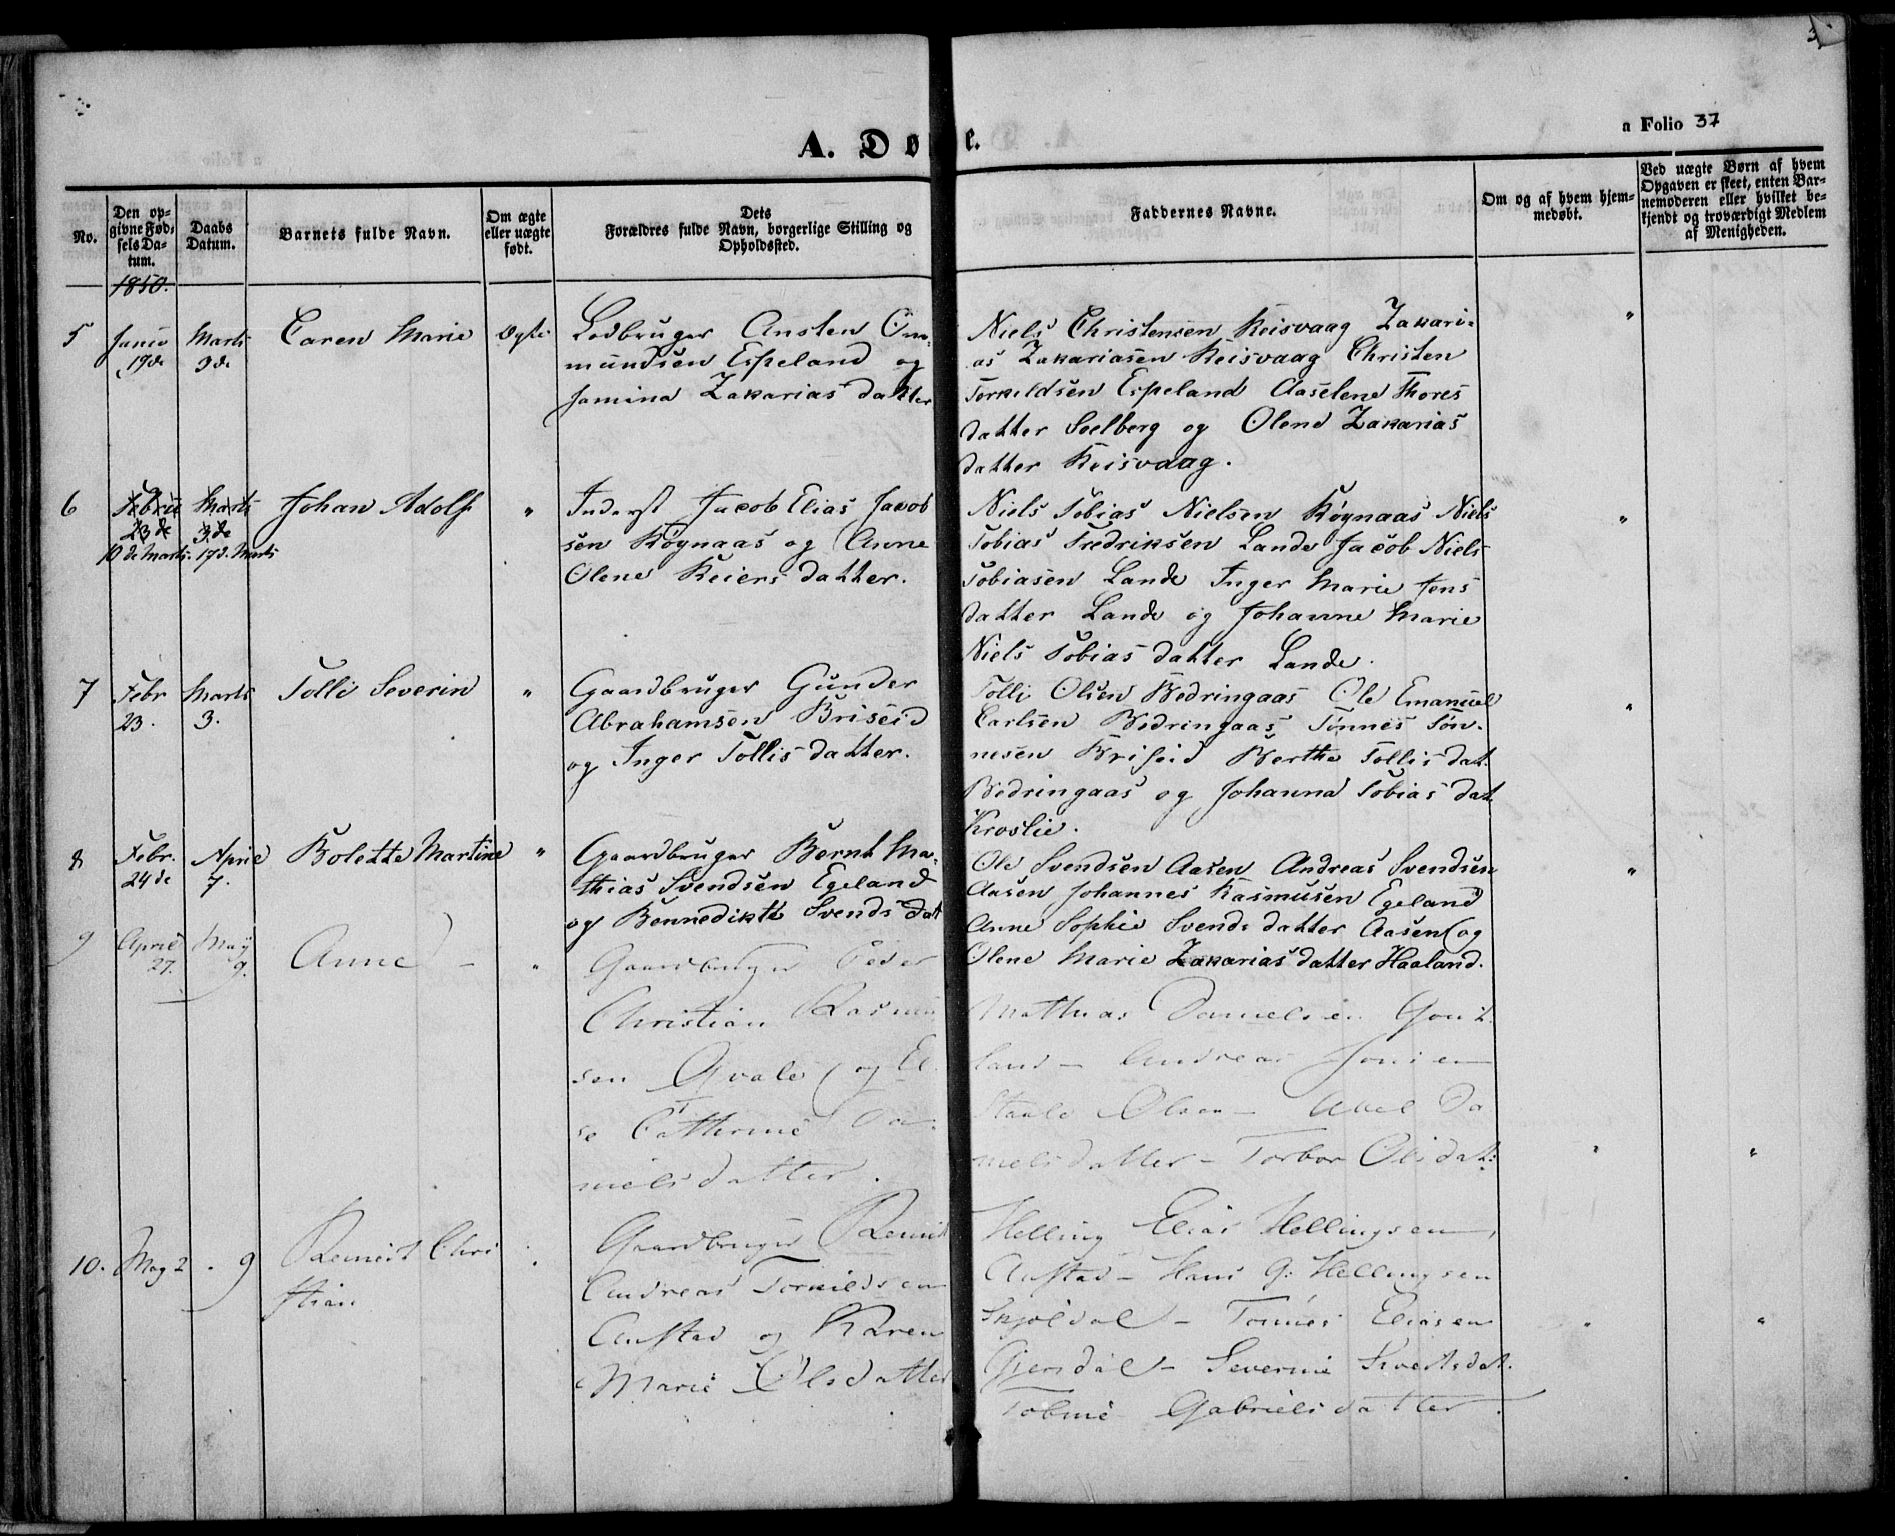 A. Døbte.
a Folio 37
No.
Den op-
givne Fød-
sels Da-
tum.
Daabs
Datum.
Barnets fulde Navn.
Om ægte
eller uægte
født.
Dets
Forældres fulde Navn, borgerlige Stilling og
Opholdssted.
Faddernes Navne.
Om og af hvem hjem-
medøbt.
Ved uægte Børn af hvem
Opgaven er skeet, enten Bar-
nemoderen eller hvilket be-
kjendt og troværdigt Medlem
af Menigheden.
1850.
5 Marts Caren Marie Ægte
19de
Ansten Om-
mundsen Espeland og
Jamina Zakarias datter
Niels Christensen Reisvaag Zakari-
as Zakariasen Reisvaag Christen
Torkildsen Espeland Aaselene Thores
datter Seelberg og Olene Zakarias
datter Reisvaag.
6 Februi Marts Johan Adolf "
23de 3de
10de Marts. 17d. Marts
Inderst Jacob Elias Jacob
sen Røgnaas og Anne
Olene Reiers datter.
Niels Tobias Nielsen Røgnaas Niels
Tobias Fredriksen Lande Jacob Niels
Tobiasen Lande Inger Marie Jens
datter Lande og Johanne Marie
Niels Tobias datter Lande.
7 Febr Marts Tolli Severin "
23. 3.
Gaardbruger Gunder
Abrahamsen Briseid
og Inger Tollis datter.
Tolli Olsen Bedringaas Ole Emanuel
Carlsen Bedringaas Tønnes Tøn-
nesen Briseid Berthe Tollis dat.
Bedringaas og Johanna Tobias dat
Kroslie.
8 Febr. April Bolette Martine "
24de 7.
Gaardbruger Bernt Ma-
thias Svendsen Egeland
og Bennedikte Svends datt
Ole Svendsen Aasen Andreas Svendsen
Aasen Johannes Rasmusen Egeland
Anne Sophie Svends datter Aasen og
Olene Marie Zakarias datter Haaland.
9 April May Anne "
27. 9.
Gaardbruger Peder
Christian Rasmu
sen Qvale og El
se Cathrine Da-
nielsdatter.
Mathias Danielsen
land - Andreas Jonsen
Olsen - Abel Da
nielsdatter - Torbor Olsdat:
10. May 2 " 9 Reinert Chri
stian
Gaardbruger Reinert
Andreas Torkildsen
Austad og Karen
Marie Olsdatter
Helling Elias Hellingsen
Austad - Hans G: Hellingsen
Skjoldal - Tønnes Eliasen
Gjersdal - Severine Sivertsdat.
Tobine Gabrielsdatter.